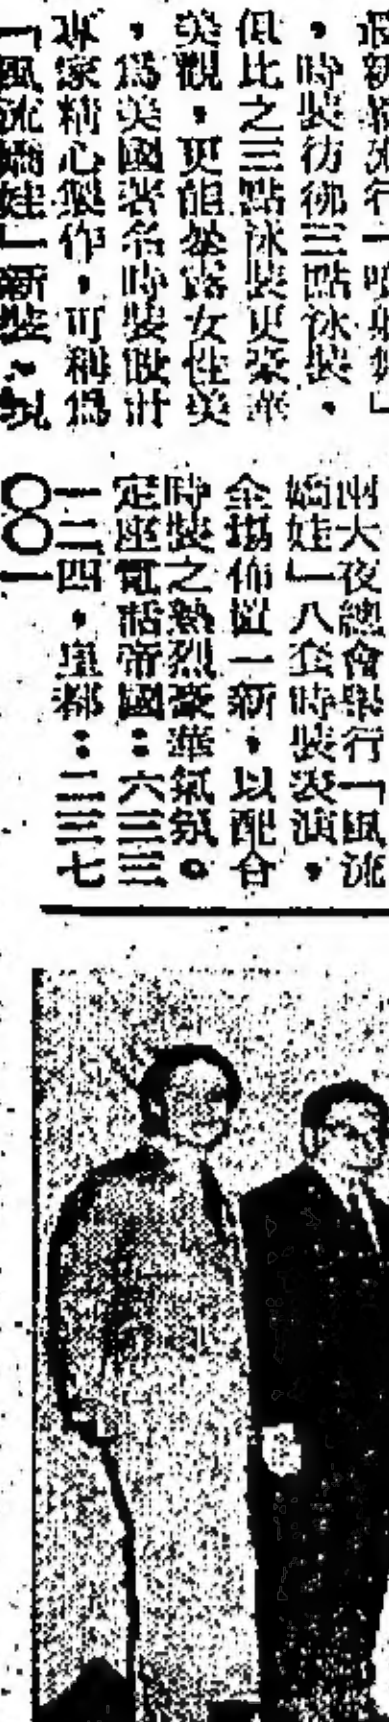 最新潮流行「噴射舞」
，時裝彷彿三點泳裝，
但比之三點泳裝更豪華
美觀，更能暴露女性美
，爲美國著名時裝設計
專家精心製作，可稱爲
「風流嬌娃」新裝，現
兩大夜總會舉行「風流
嬌娃」八套時裝表演，
全場佈置一新，以配合
時裝之熱烈豪華氣氛。
定座電話帝國：六三三
一二四，皇都：二三七
〇〇一